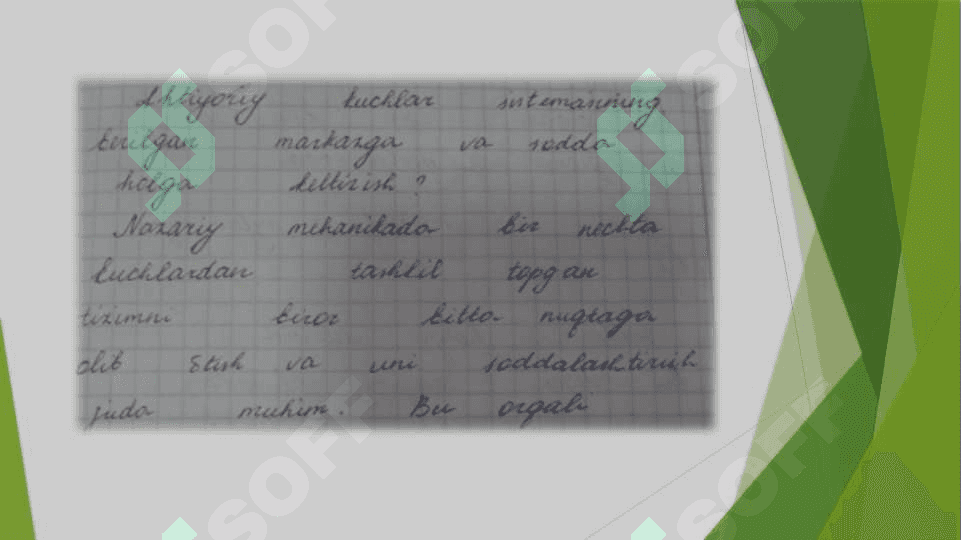 SOFF SOFF
Ihtiyoriy kuchlar sistemanining
berilgan markazga va sodda
holga keltirish ?
Nazariy mehanikada bir nechta
kuchlardan tashkil topgan
tizimni biror bitta nuqtaga
olib etish va uni soddalashtirish
juda muhim. Bu orqali
SOFF SOFF